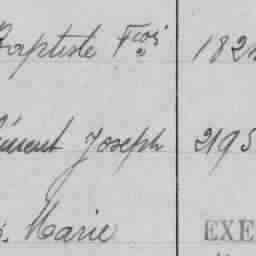 Baptiste Fçois 182
Clément Joseph 2195
Marie EXE